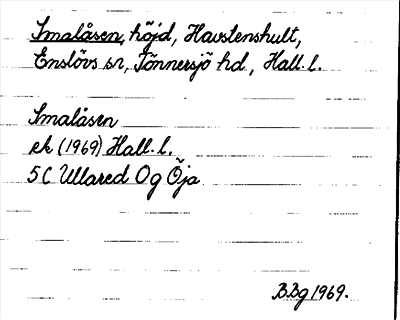 Smalåsen, höjd, Havstenshult,
Enslövs sn, Tönnersjö hd., Hall. l.
Smalåsen
ek (1969) Hall. l.
5 C Ullared O g Öja
B.Bg 1969.